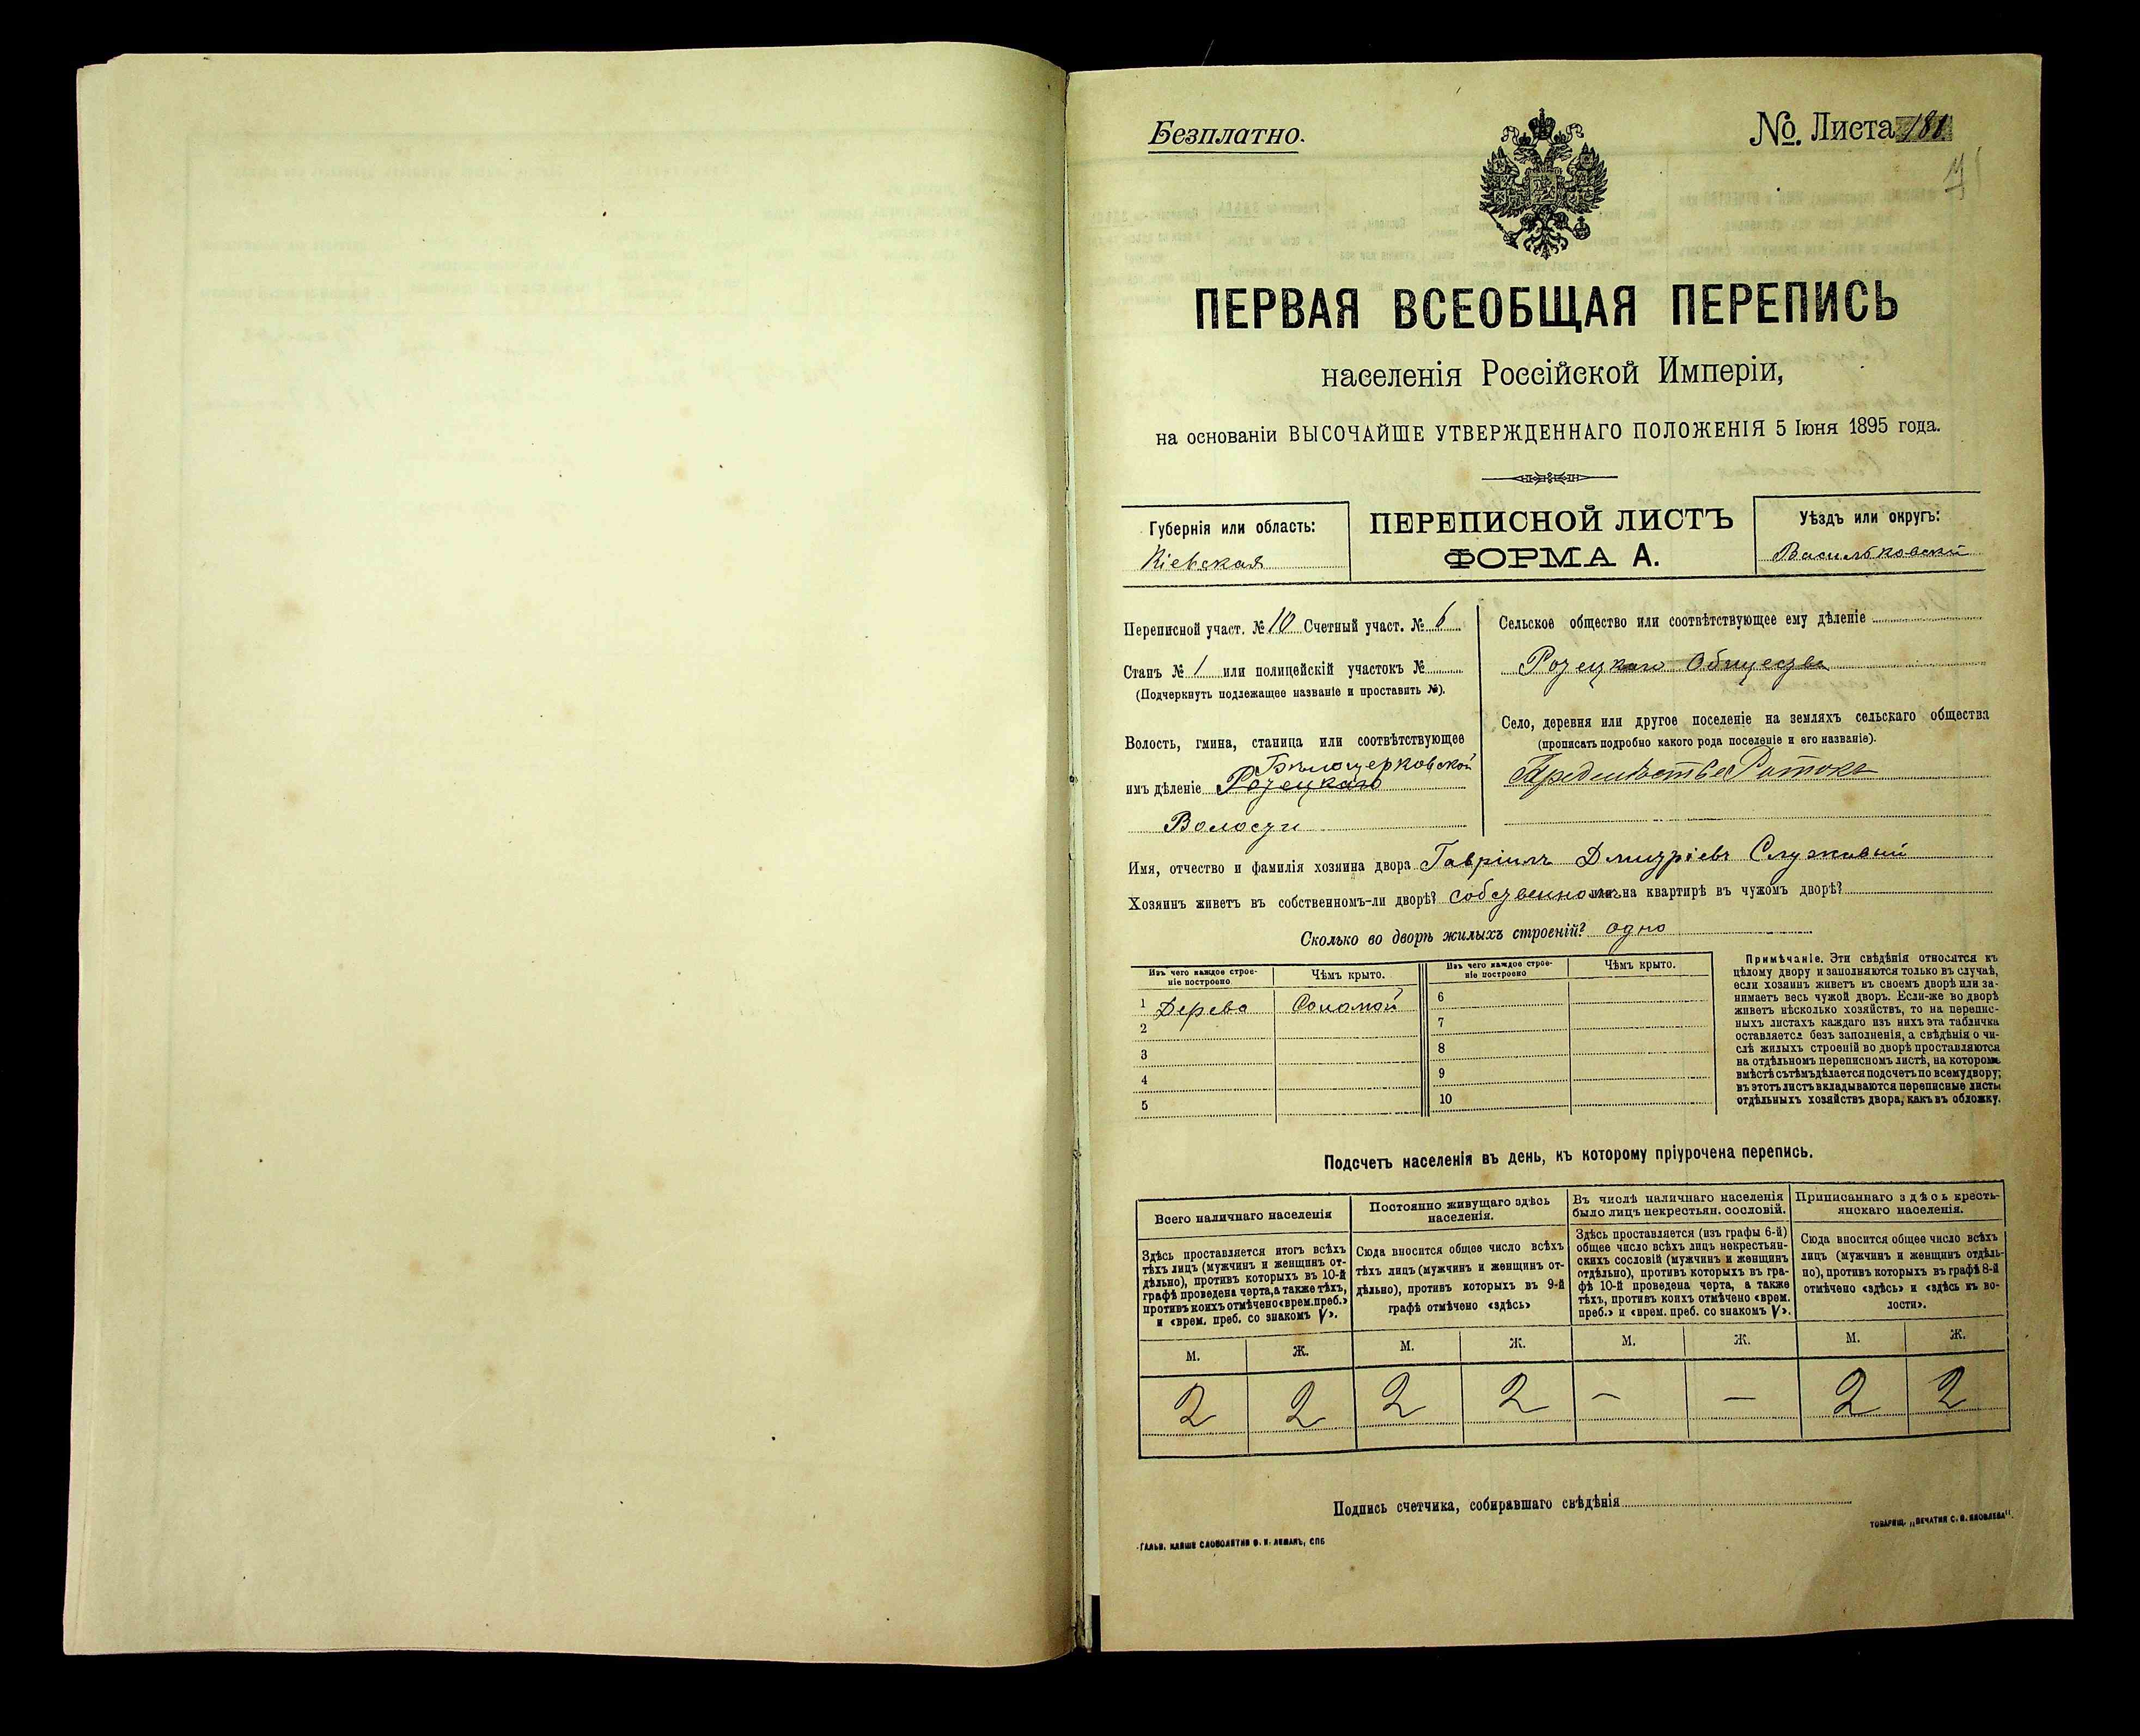 Безплатно.
№. Листа 181
ПЕРВАЯ ВСЕОБЩАЯ ПЕРЕПИСЬ
населенія Россійской Имперіи,
на основаніи ВЫСОЧАЙШЕ УТВЕРЖДЕННАГО ПОЛОЖЕНІЯ 5 Іюня 1895 года.
Губернія или область:
Кіевская
ПЕРЕПИСНОЙ ЛИСТЪ
ФОРМА А.
Уѣздъ или округъ:
Васильковскій
Переписной участ. № 10 Счетный участ. № 6
Станъ № 1 или полицейскій участокъ №
(Подчеркнуть подлежащее названіе и проставить №).
Волость, гмина, станица или соотвѣтствующее
Бѣлоцерковской
имъ дѣленіе
Волости
Сельское общество или соотвѣтствующее ему дѣленіе
Общества
Село, деревня или другое поселеніе на земляхъ сельскаго общества
(прописать подробно какого рода поселеніе и его названіе).
Предмѣстье Ротокъ
Имя, отчество и фамилія хозяина двора Гавріилъ Дмитріевъ Служивый
Хозяинъ живетъ въ собственномъ-ли дворѣ? собственномъ или на квартирѣ въ чужомъ дворѣ?
Сколько во дворѣ жилыхъ строеній? одно
Изъ чего каждое строе-
ніе построено
Чѣмъ крыто.
Изъ чего каждое строе-
ніе построено
Чѣмъ крыто.
1 Дерева Соломой
2
3
4
5
6
7
8
9
10
Примѣчаніе. Эти свѣдѣнія относятся къ
цѣлому двору и заполняются только въ случаѣ,
если хозяинъ живетъ въ своемъ дворѣ или за-
нимаетъ весь чужой дворъ. Если-же во дворѣ
живетъ нѣсколько хозяйствъ, то на перепис-
ныхъ листахъ каждаго изъ нихъ эта табличка
оставляется безъ заполненія, а свѣдѣнія о чи-
слѣ жилыхъ строеній во дворѣ проставляются
на отдѣльномъ переписномъ листѣ, на которомъ
вмѣстѣ съ тѣмъ дѣлается подсчетъ по всему двору;
въ этотъ листъ вкладываются переписные листы
отдѣльныхъ хозяйствъ двора, какъ въ обложку.
Подсчетъ населенія въ день, къ которому пріурочена перепись.
Всего наличнаго населенія
Здѣсь проставляется итогъ всѣхъ
тѣхъ лицъ (мужчинъ и женщинъ от-
дѣльно), противъ которыхъ въ 10-й
графѣ проведена черта, а также тѣхъ,
противъ коихъ отмѣчено «врем. преб.»
и «врем. преб. со знакомъ V».
Постоянно живущаго здѣсь
населенія.
Сюда вносится общее число всѣхъ
тѣхъ лицъ (мужчинъ и женщинъ от-
дѣльно), противъ которыхъ въ 9-й
графѣ отмѣчено «здѣсь»
Въ числѣ наличнаго населенія
было лицъ некрестьян. сословій.
Здѣсь проставляется (изъ графы 6-й)
общее число всѣхъ лицъ некрестьян-
скихъ сословій (мужчинъ и женщинъ
отдѣльно), противъ которыхъ въ гра-
фѣ 10-й проведена черта, а также
тѣхъ, противъ коихъ отмѣчено «врем.
преб.» и «врем. преб. со знакомъ V».
Приписаннаго здѣсь кресть-
янскаго населенія.
Сюда вносится общее число всѣхъ
лицъ (мужчинъ и женщинъ отдѣль-
но), противъ которыхъ въ графѣ 8-й
отмѣчено «здѣсь» и «здѣсь къ во-
лости».
М. Ж. М. Ж. М. Ж. М. Ж.
2 2 2 2 — — 2 2
Подпись счетчика, собиравшаго свѣдѣнія
ТОВАРИЩ. „ПЕЧАТНЯ С. П. ЯКОВЛЕВА".